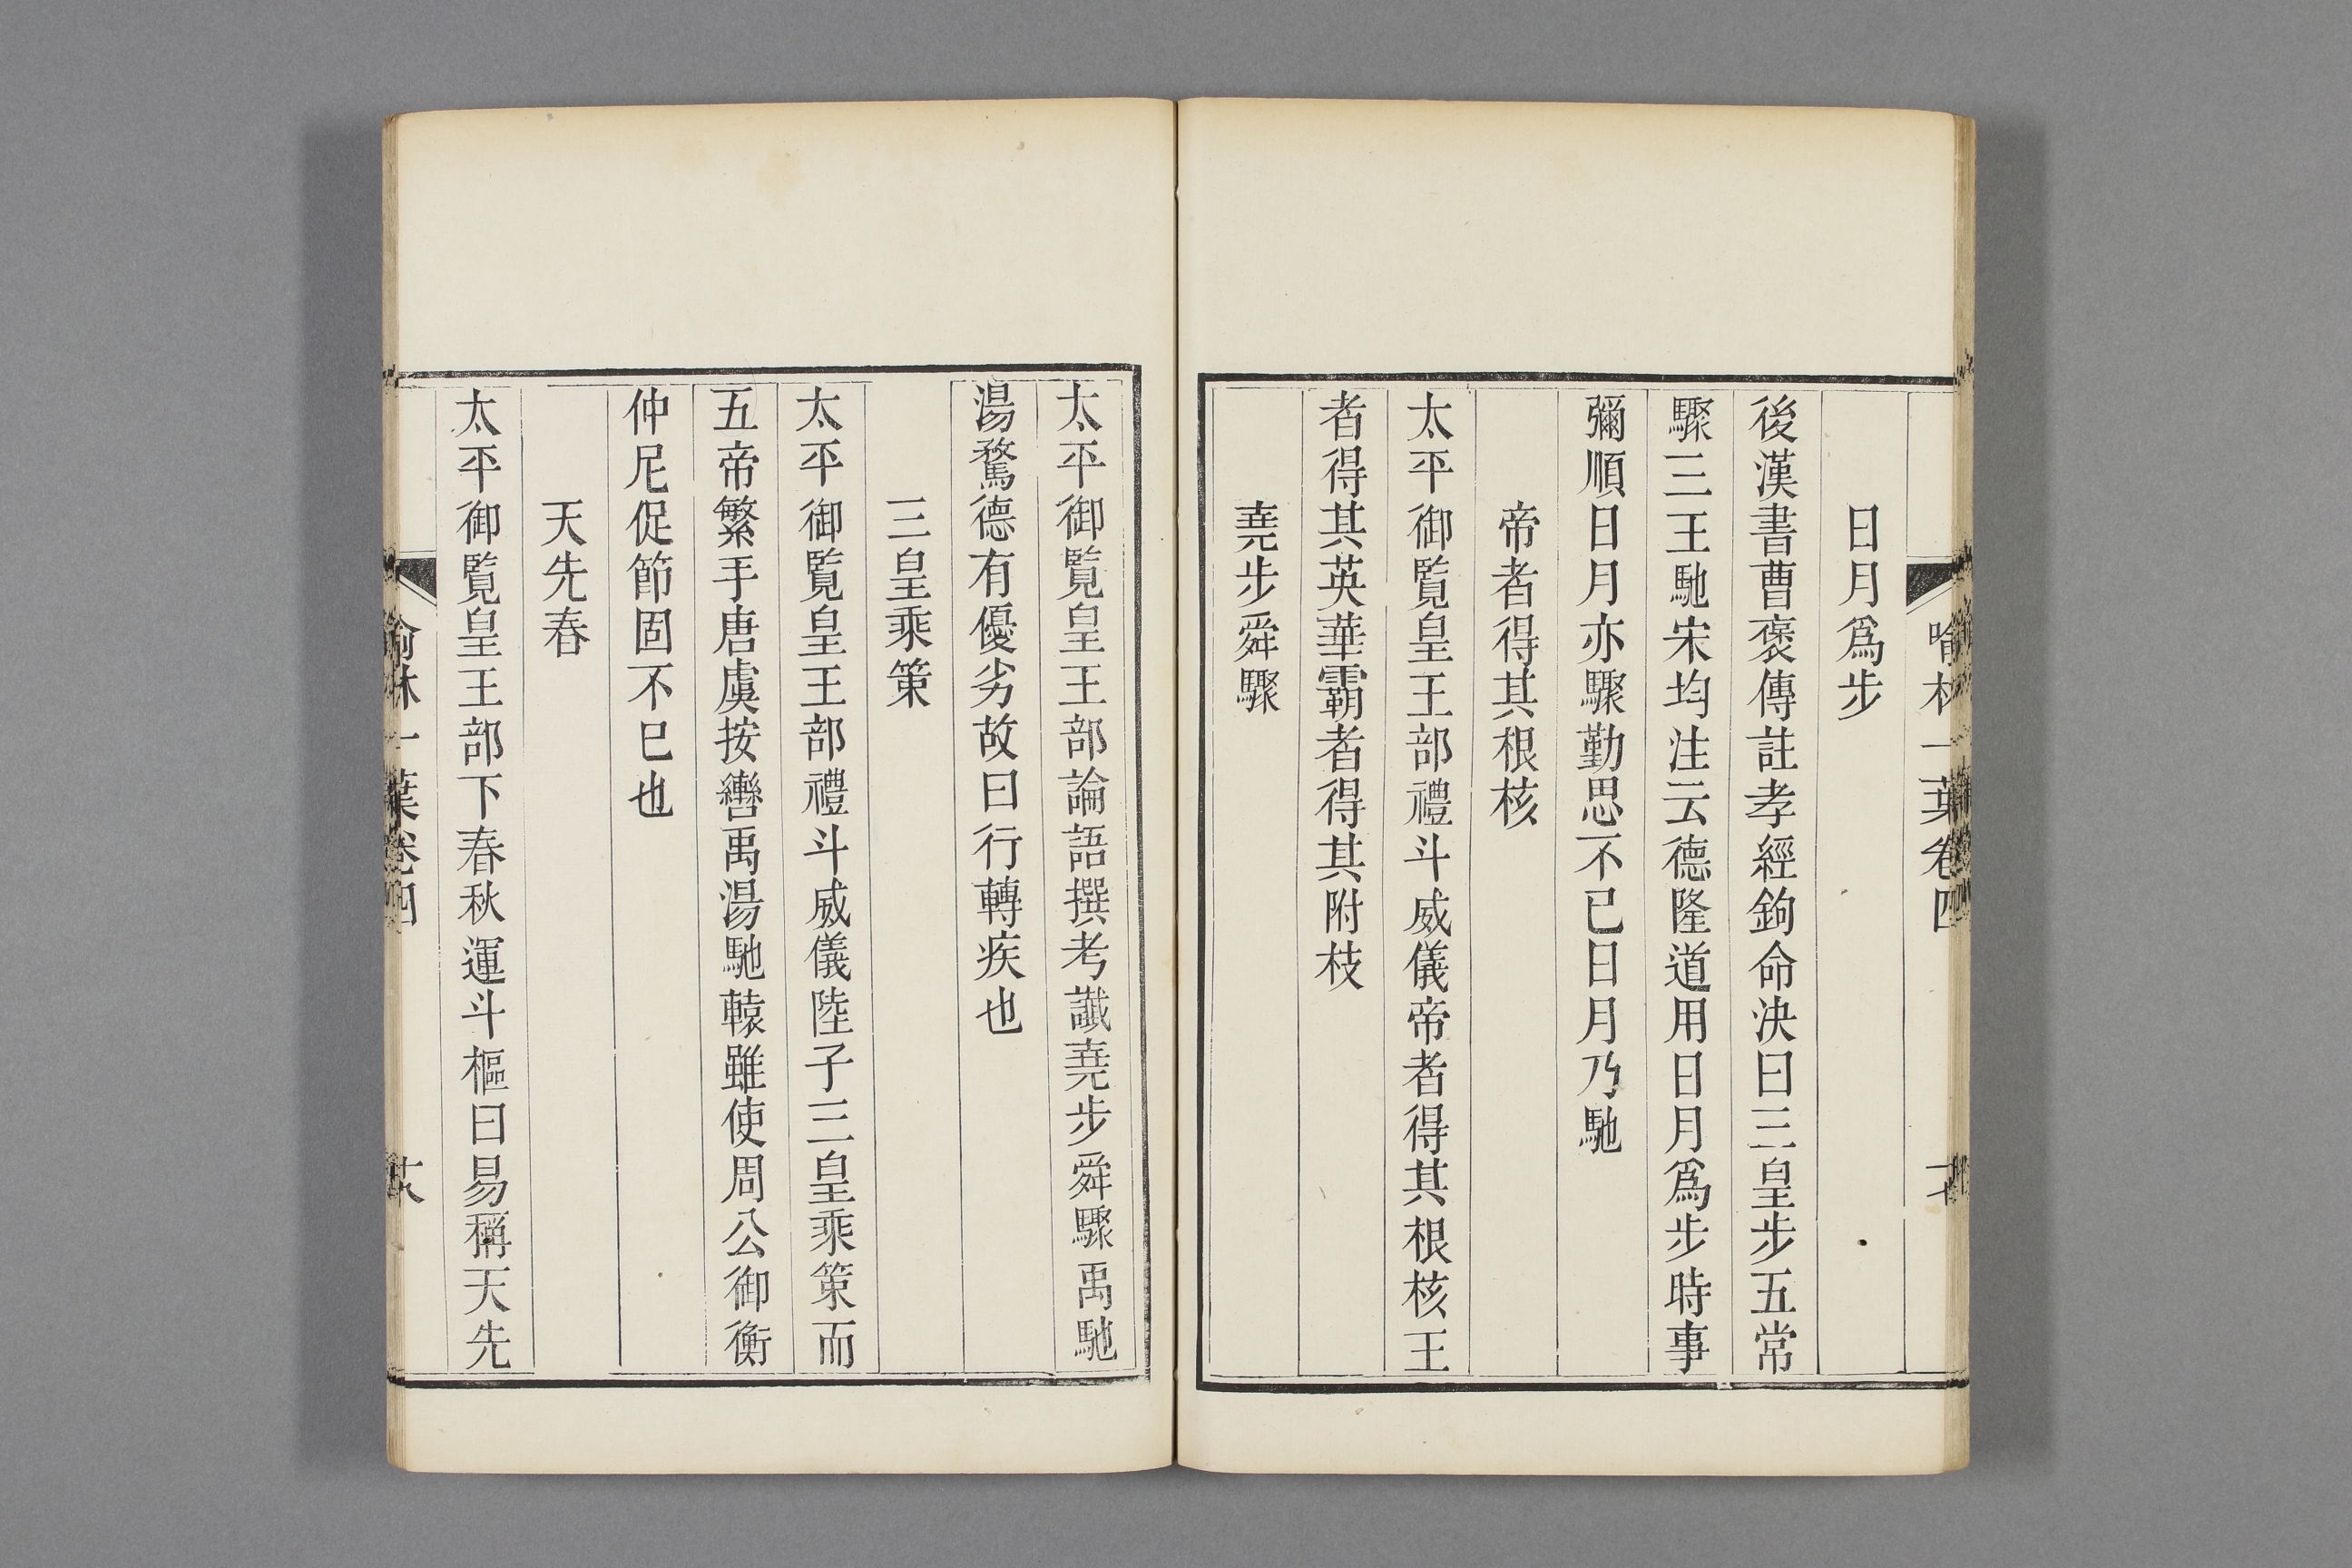 日月爲步
後漢書曹褒傳註孝經鉤命決曰三皇步五常
驟三王馳宋均注云德隆道用日月爲步時事
彌順日月亦驟勤思不已日月乃馳
帝者得其根核
太平御覽皇王部禮斗威儀帝者得其根核王
者得其英華霸者得其附枝
堯步舜驟
太平御覽皇王部論語撰考讖堯步舜驟禹馳
湯騖德有優劣故曰行轉疾也
三皇乘策
太平御覽皇王部禮斗威儀陸子三皇乘策而
五帝繁手唐虞按轡禹湯馳轅雖使周公御衡
仲尼促節固不已也
天先春
太平御覽皇王部下春秋運斗樞曰易稱天先
喻林一葉卷四